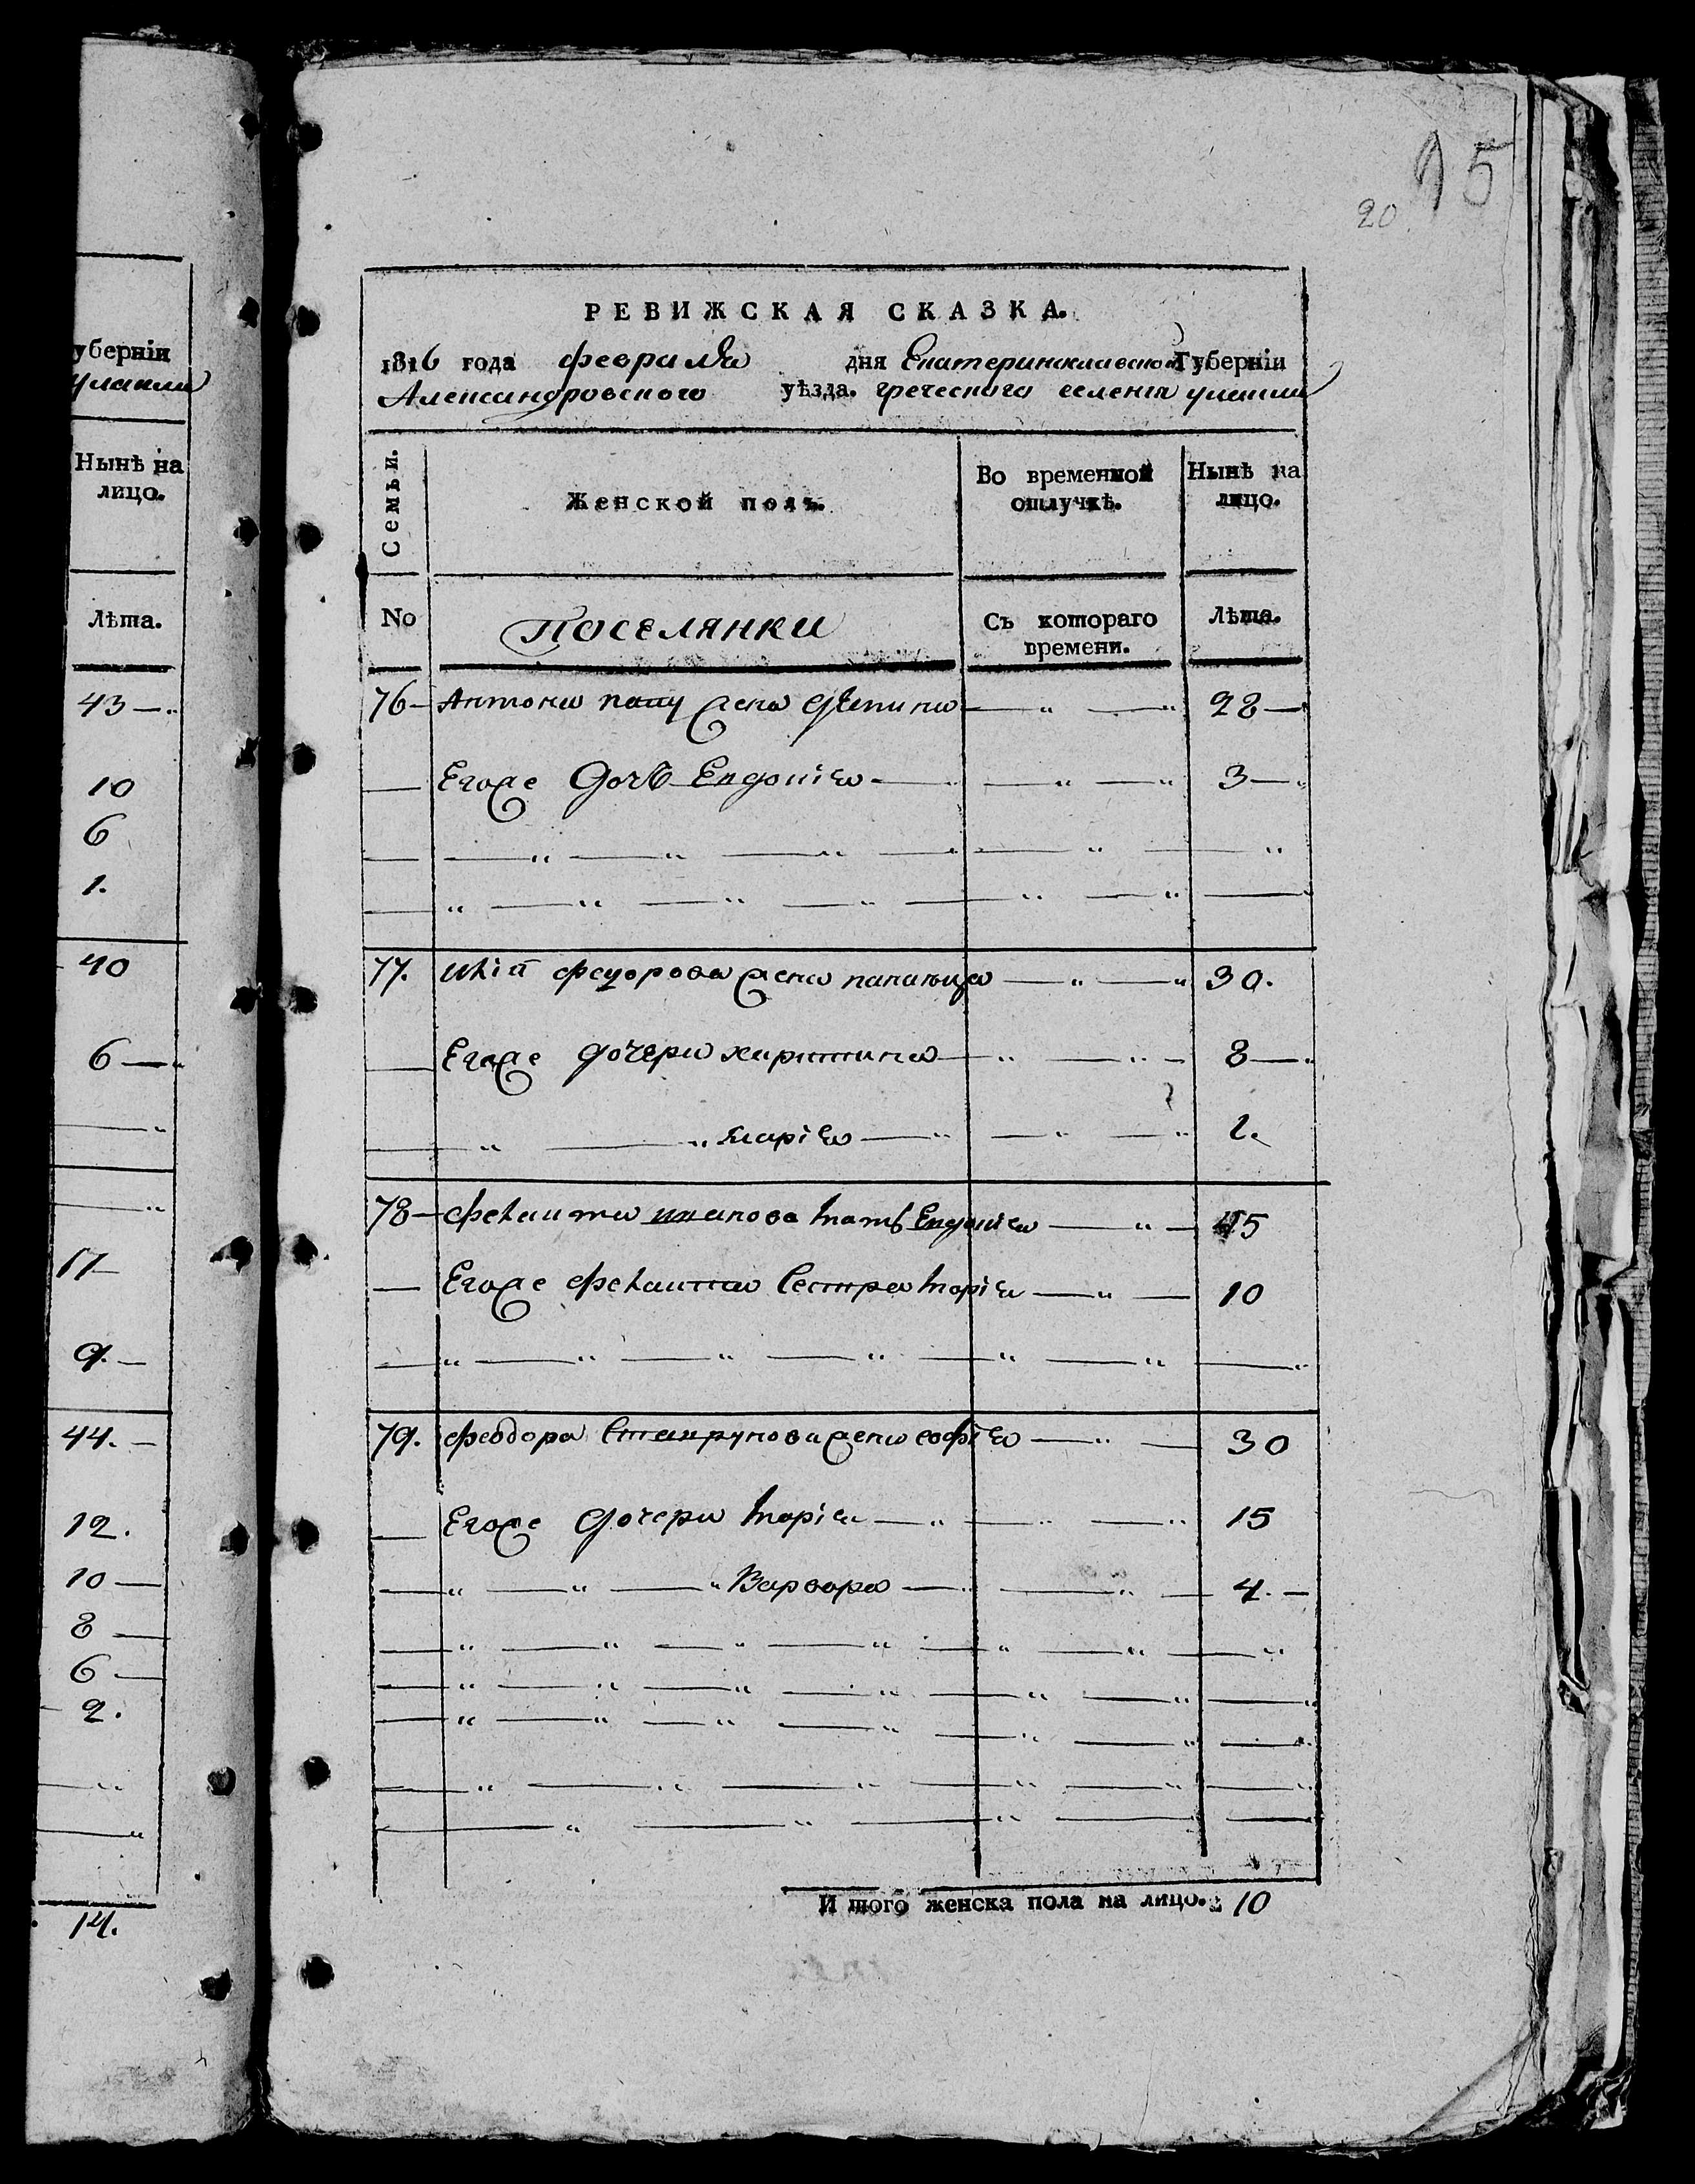 убернiи
улаклы
Нынѣ на
лицо.
Лѣта.
43
10
6
1.
40
6
17
9.
44.
12.
10
8
6
2.
14.
15
20.
РЕВИЖСКАЯ СКАЗКА.
1816 года февраля дня Екатеринославской Губернiи
Александровского уѣзда. греческого селенiя улаклы
Семьи. Женской полъ. Во временной отлучкѣ. Нынѣ на лицо.
No Поселянки Съ котораго времени. Лѣта.
76 Антона жена 28
Егоже дочь Евдокiя 3
77. Илiи федорова жена 30.
Егоже дочери харитина 8
марiя 2.
78 мать Евдокiя 45
Егоже сестра марiя 10
79. феодора жена софiя 30
Егоже дочери марiя 15
Варвара 4.
И того женска пола на лицо. 10